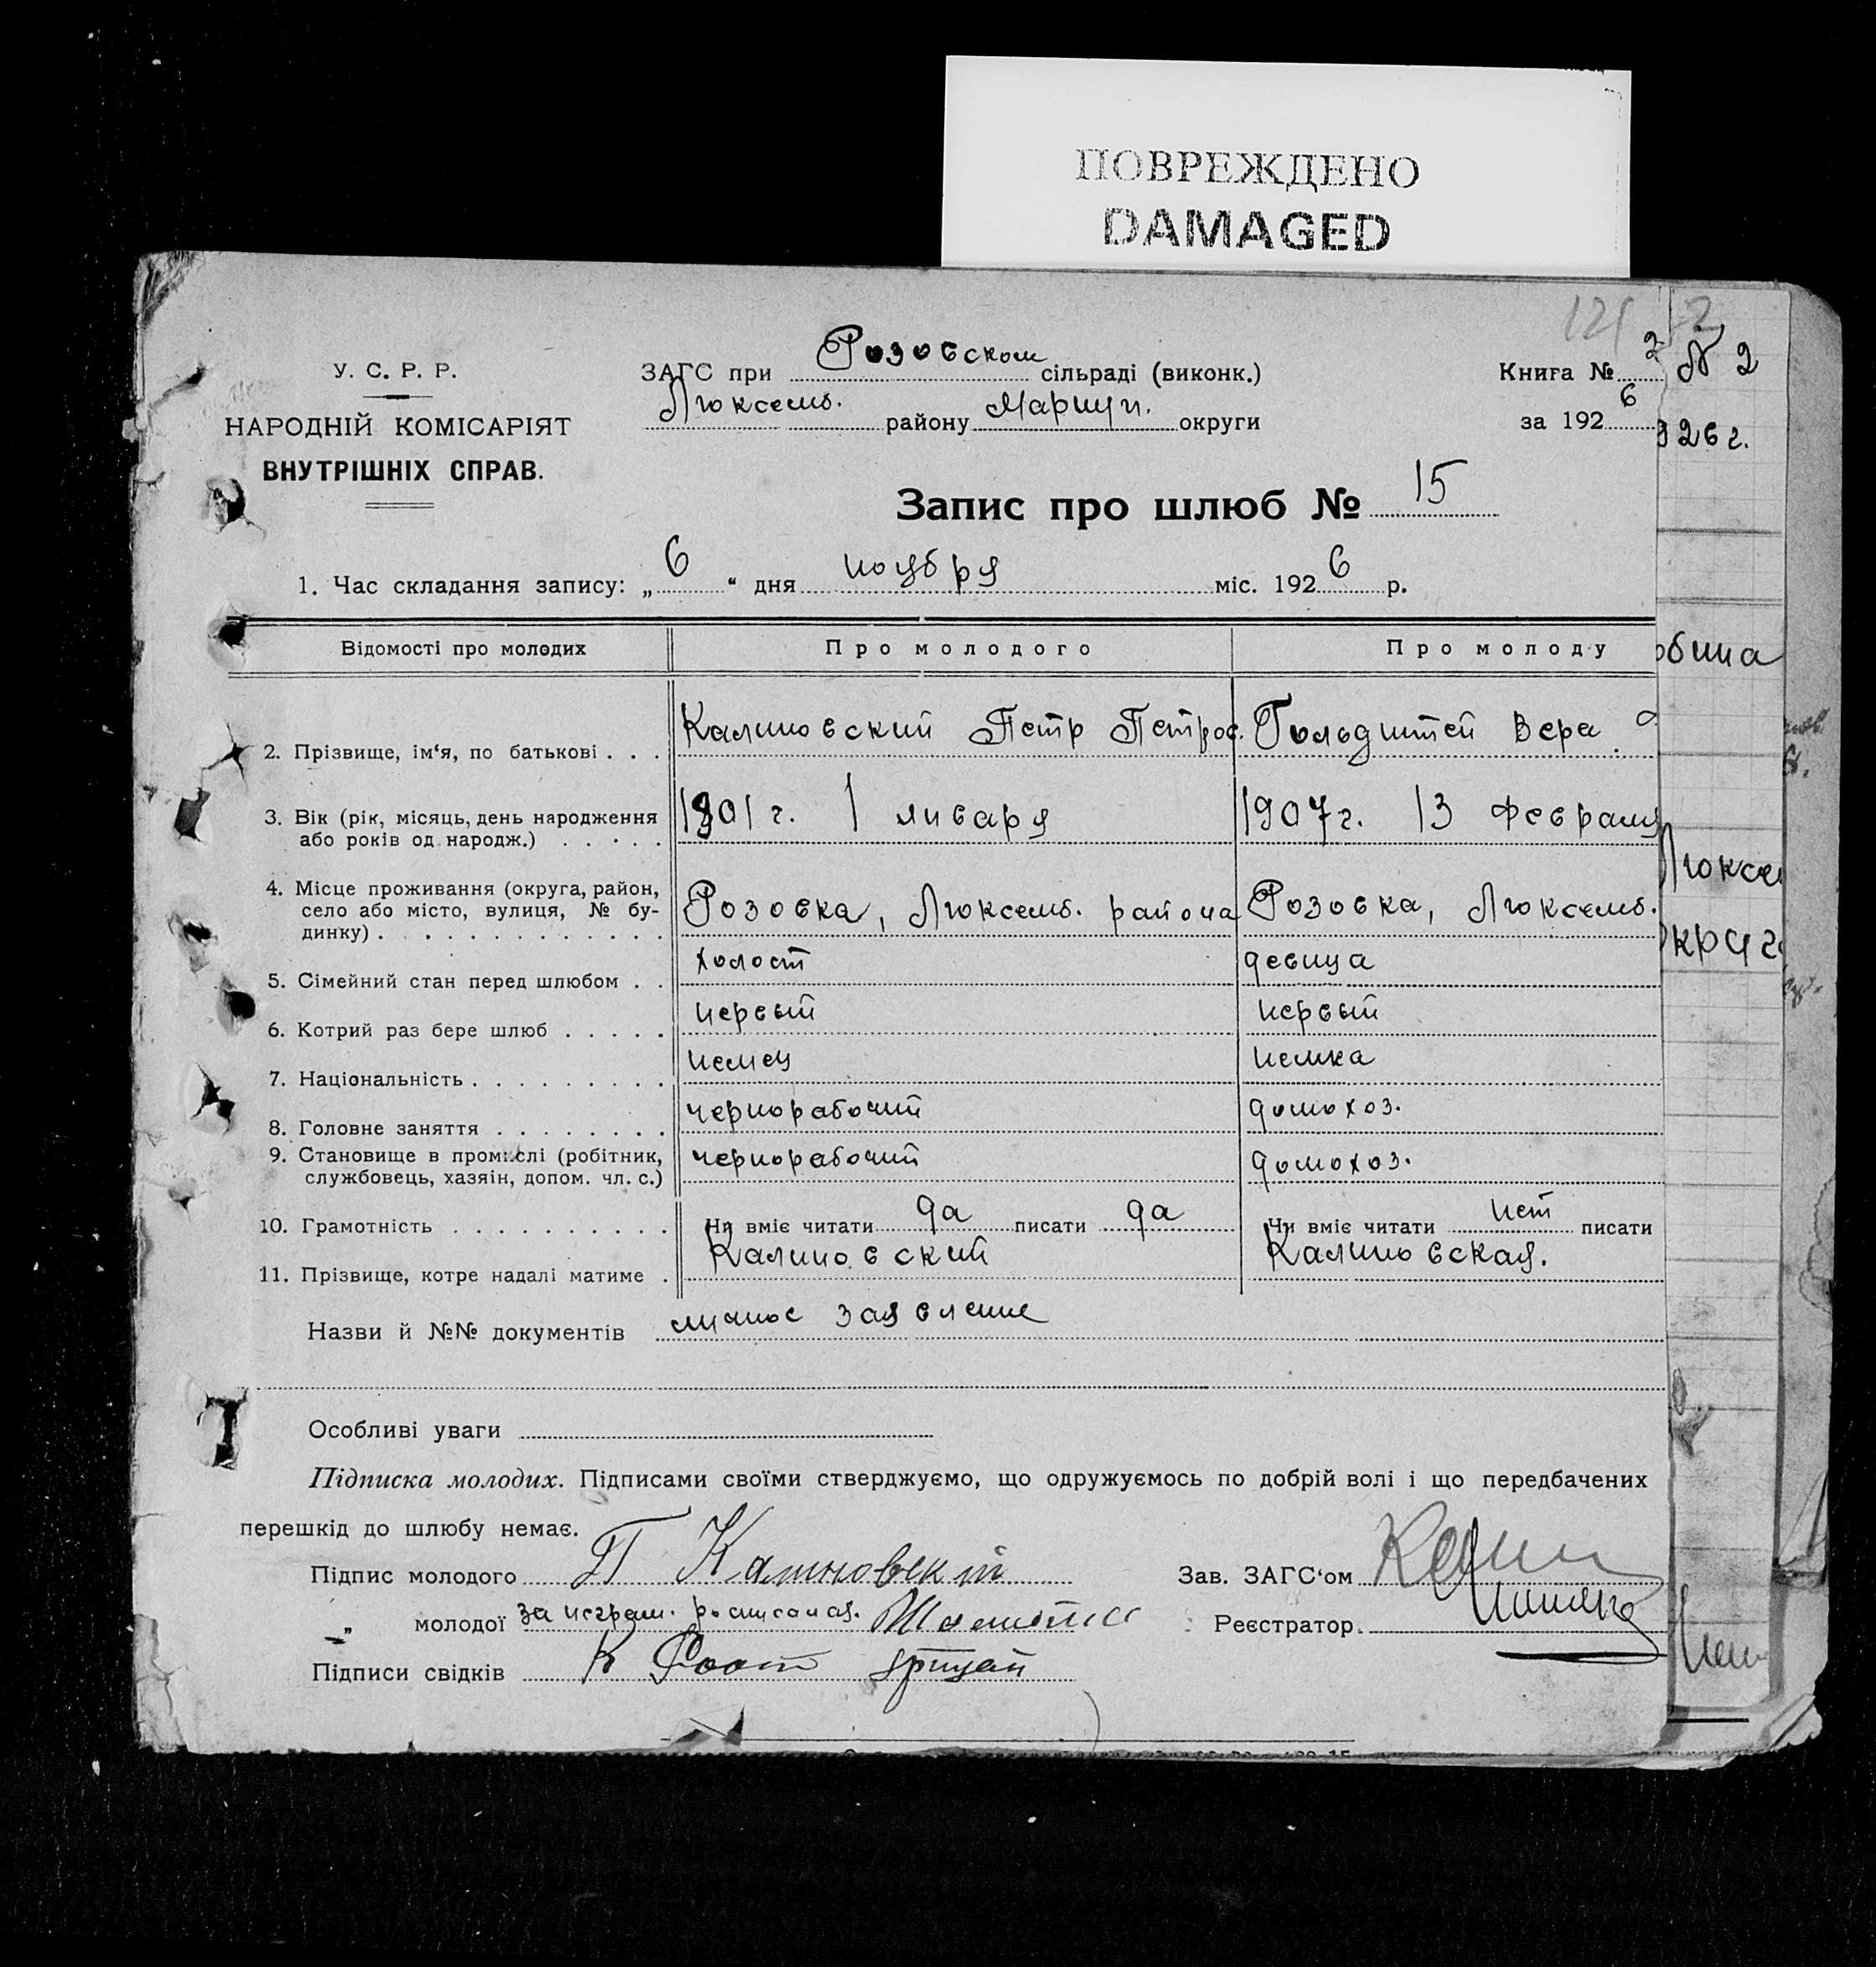 ПОВРЕЖДЕНО
DAMAGED
У. С. Р. Р.
НАРОДНІЙ КОМІСАРІЯТ
ВНУТРІШНІХ СПРАВ.
ЗАГС при Розовском сільраді (виконк.)
Люксемб. району Мариуп. округи
Книга № 2
за 1926
№ 2
926 г.
Запис про шлюб № 15
1. Час складання запису: „6“ дня ноября міс. 1926 р.
Відомості про молодих Про молодого Про молоду
2. Прізвище, ім‘я, по батькові . . . Калиновский Петр Петров. Гольдштей Вера
3. Вік (рік, місяць, день народження
або років од народж.) . . . . . 1901 г. 1 января 1907 г. 13 февраля
4. Місце проживання (округа, район,
село або місто, вулиця, № бу-
динку) . . . . . . . . . . . . . Розовка, Люксемб. района Розовка, Люксемб.
5. Сімейний стан перед шлюбом . . холост девица
6. Котрий раз бере шлюб . . . . . первый первый
7. Національність . . . . . . . . . немец немка
8. Головне заняття . . . . . . . . чернорабочий домохоз.
9. Становище в промислі (робітник,
службовець, хазяін, допом. чл. с.) чернорабочий домохоз.
10. Грамотність . . . . . . . . . . . Чи вміє читати да писати да Чи вміє читати нет писати
11. Прізвище, котре надалі матиме . Калиновский Калиновская.
Назви й №№ документів личное заявление
Особливі уваги
Підписка молодих. Підписами своїми стверджуємо, що одружуємось по добрій волі і що передбачених
перешкід до шлюбу немає.
Підпис молодого П Калиновский Зав. ЗАГС‘ом
„ молодої за неграм. Реєстратор
Підписи свідків К Роот